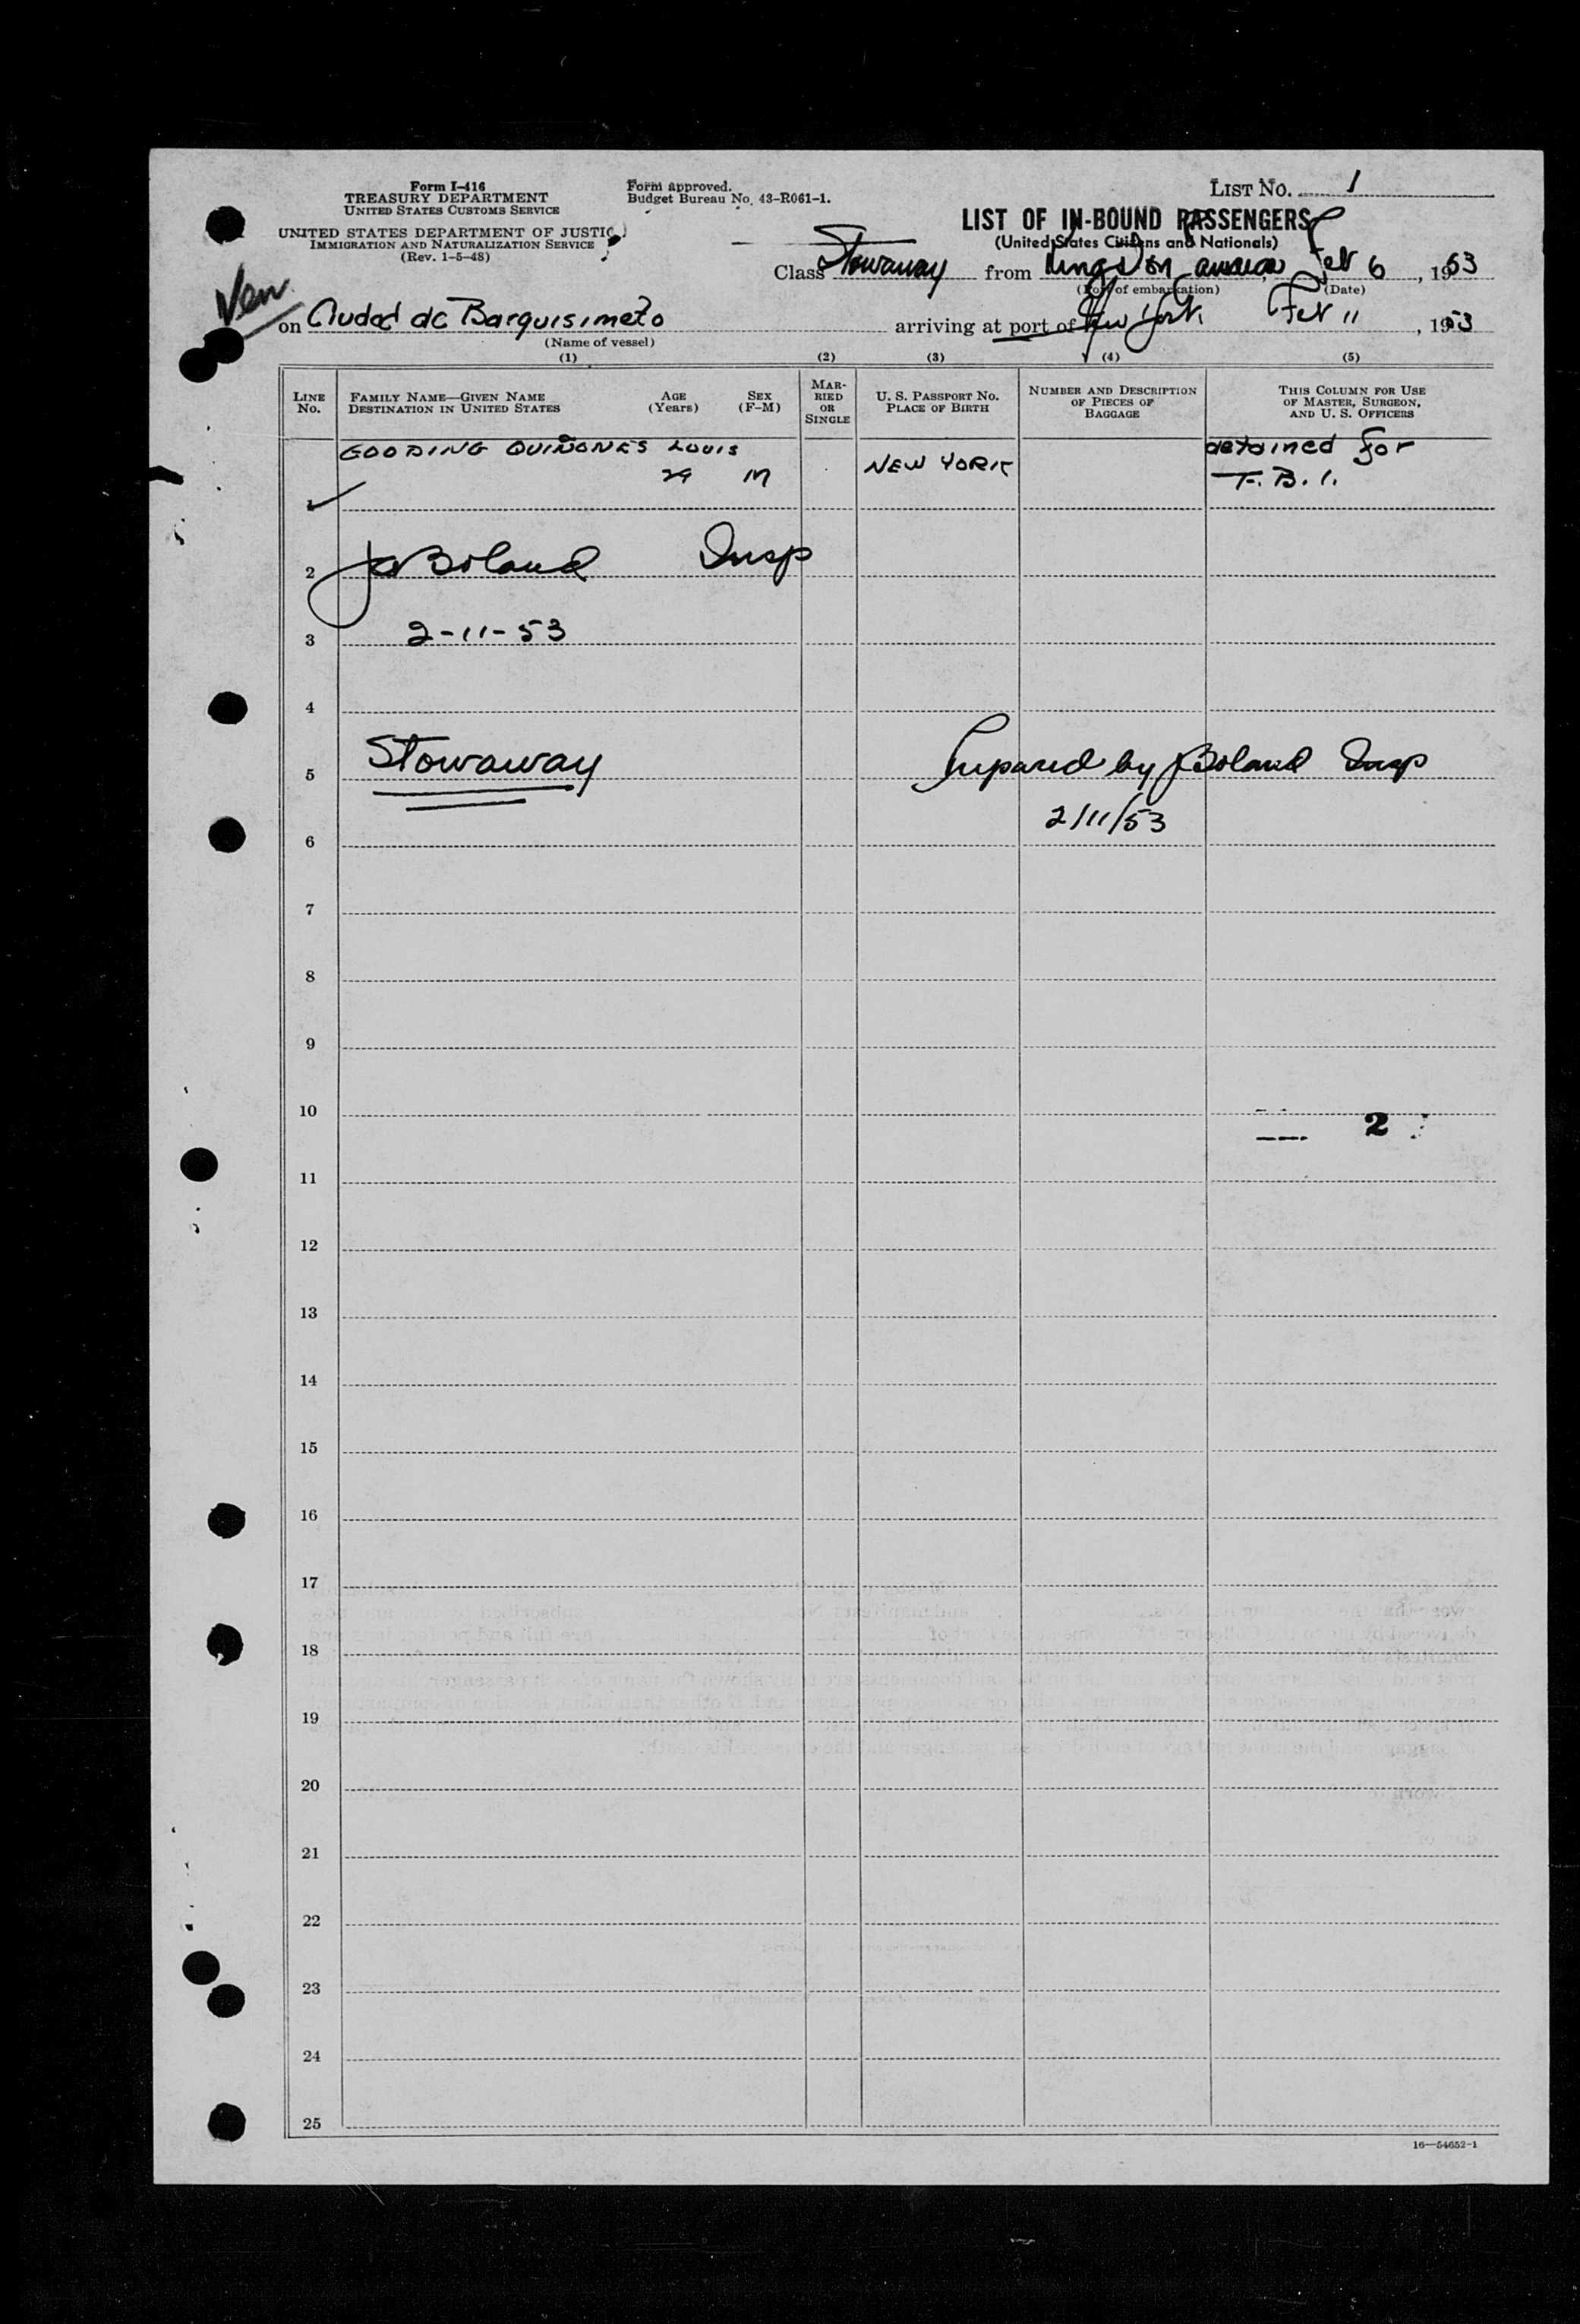 Form I-416
TREASURY DEPARTMENT
UNITED STATES CUSTOMS SERVICE
UNITED STATES DEPARTMENT OF JUSTIC
IMMIGRATION AND NATURALIZATION SERVICE
(Rev. 1-5-48)
Form approved.
Budget Bureau No. 43-R061-1.
LIST NO. 1
LIST OF IN-BOUND PASSENGERS
(United States Citizens and Nationals)
Class Stowaway from Kingston Jamaica, Feb 6, 1953
(Port of embarkation) (Date)
Ven
on Ciudad de Barquisimeto arriving at port of New York Feb 11, 1953
(Name of vessel)
(1) (2) (3) (4) (5)
LINE No. FAMILY NAME—GIVEN NAME DESTINATION IN UNITED STATES AGE (Years) SEX (F-M) MARRIED OR SINGLE U. S. PASSPORT NO. PLACE OF BIRTH NUMBER AND DESCRIPTION OF PIECES OF BAGGAGE THIS COLUMN FOR USE OF MASTER, SURGEON, AND U. S. OFFICERS
GOODING QUIÑONES LOUIS detained for
29 M NEW YORK F.B.I.
1
2 Boland Insp
3 2-11-53
4
5 Stowaway Prepared by Boland Insp
2/11/53
6
7
8
9
10
2
11
12
13
14
15
16
17
18
19
20
21
22
23
24
25
16—54652-1